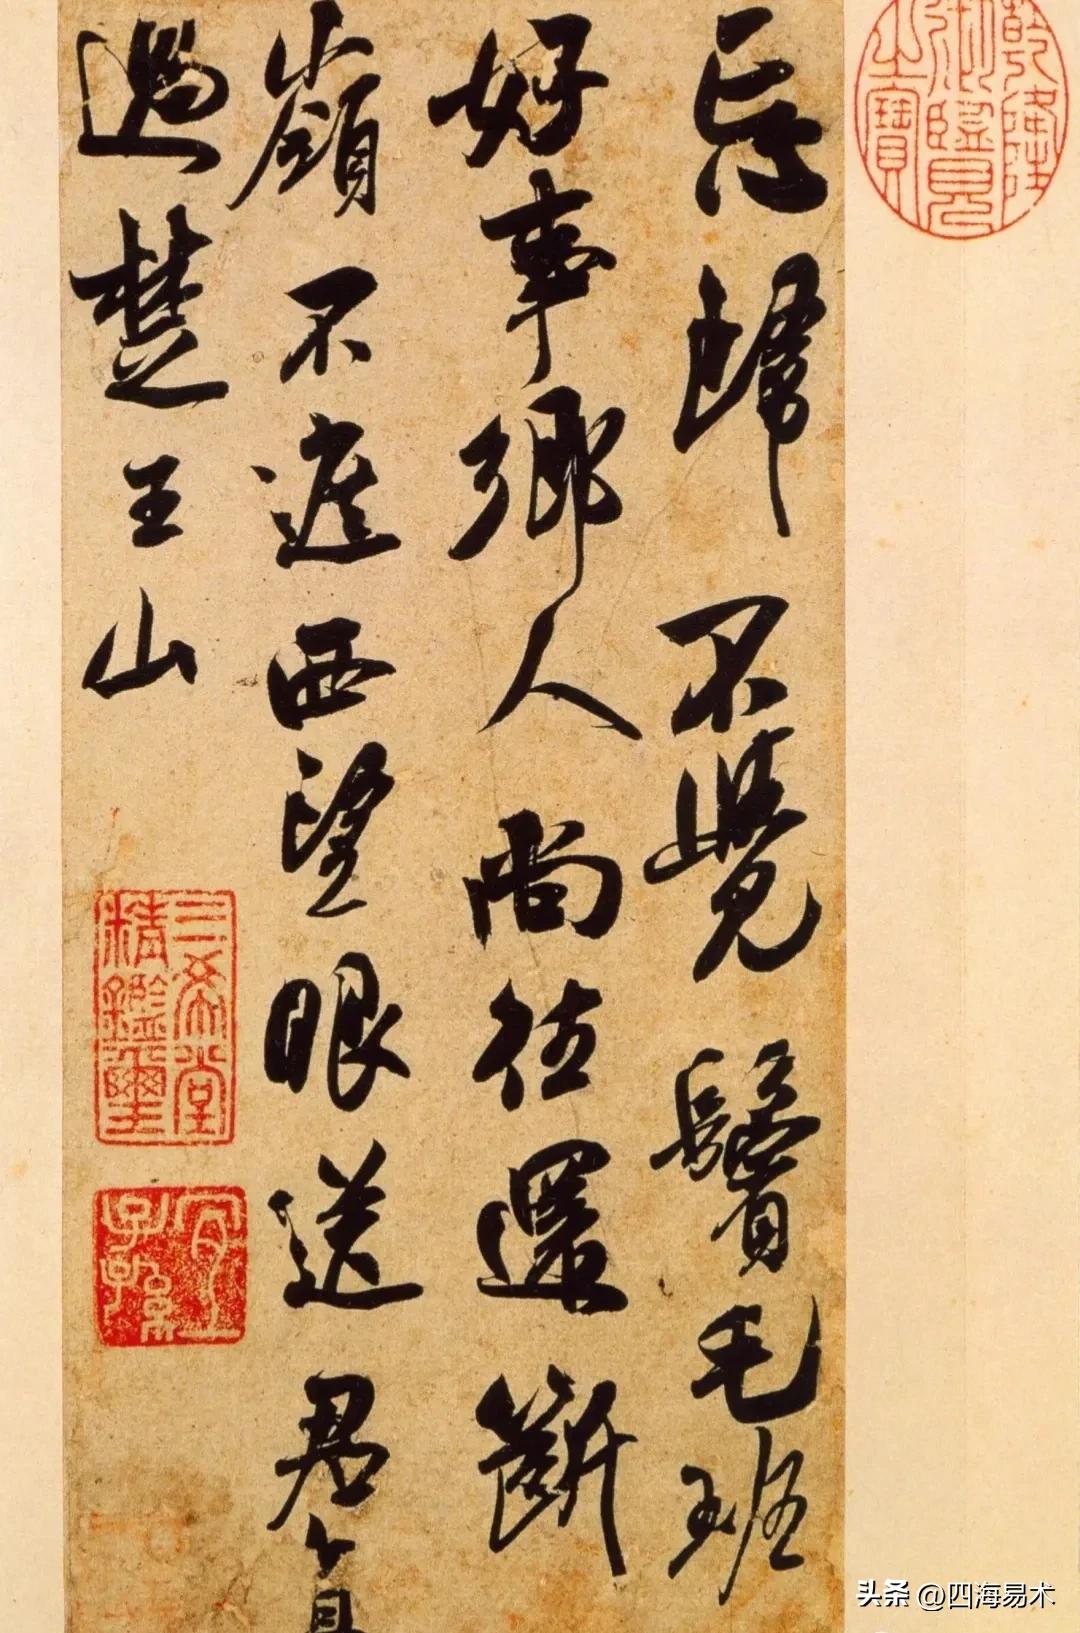 乾隆
御覽
之寶
忘歸不覺鬢毛班
好事鄉人尚往還斷
嶺不遮西望眼送君直
過楚王山
三希堂
精鑑璽
宜
子孫
头条 @四海易术